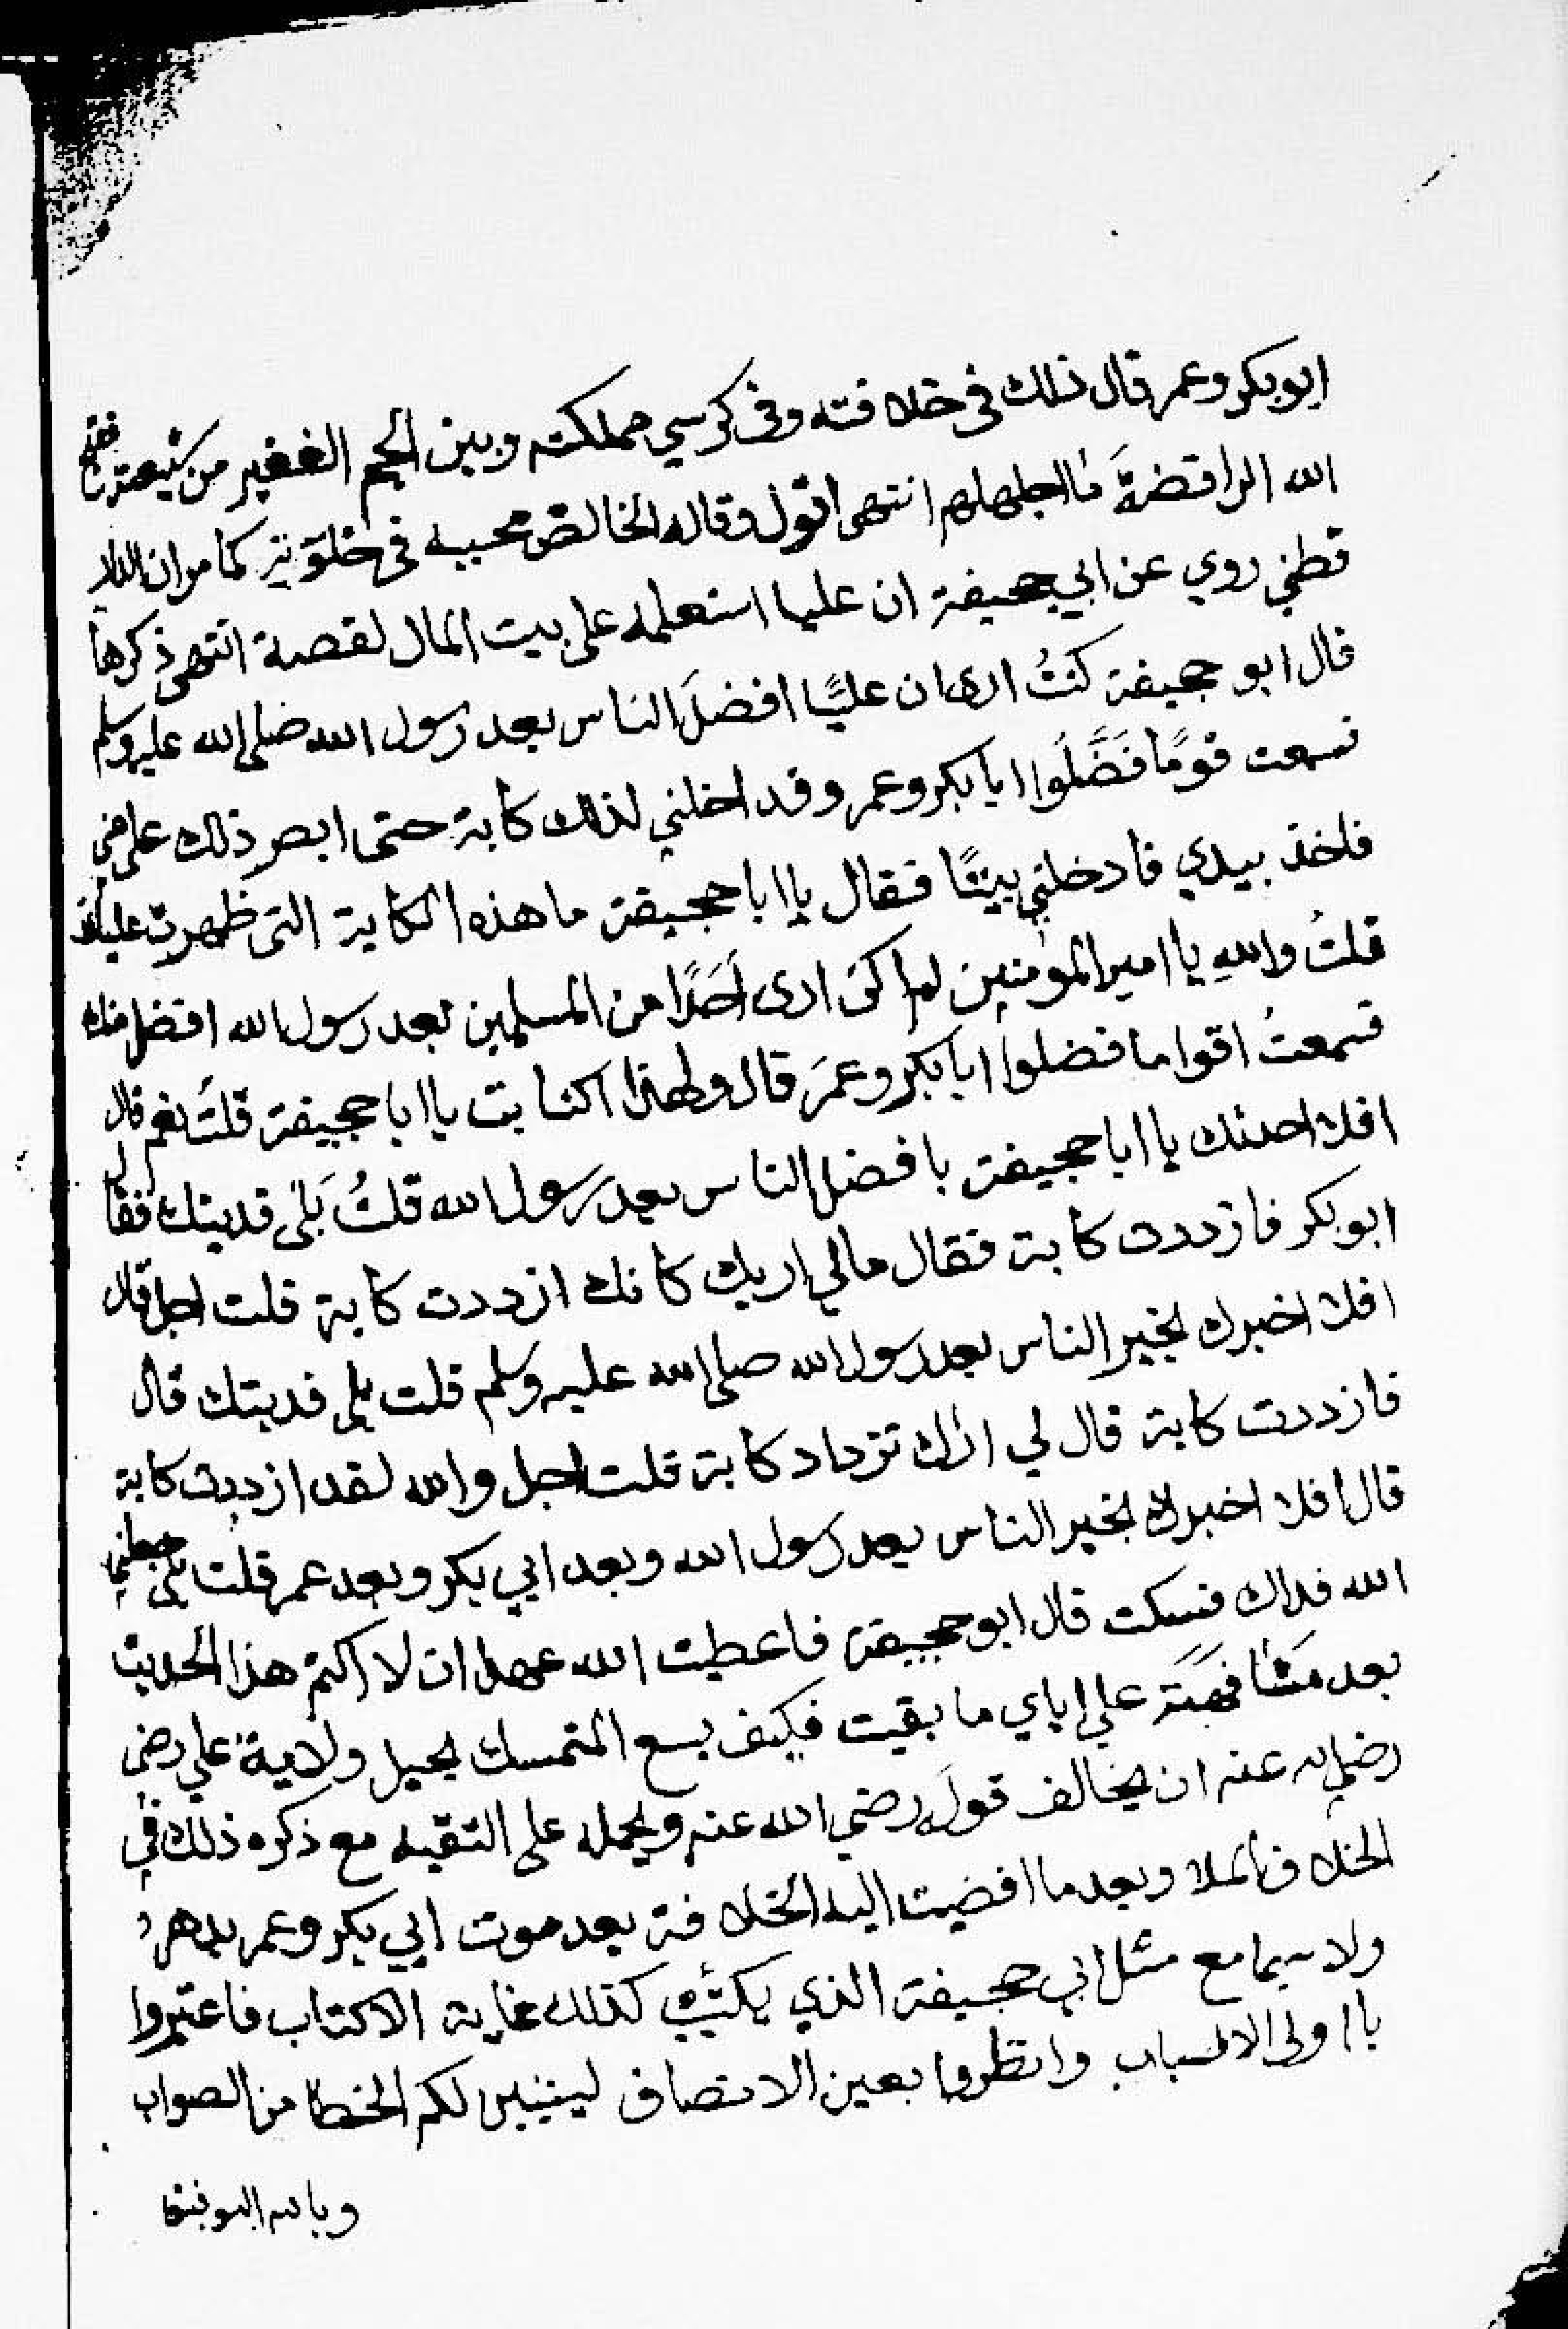 ابو بكر وعمر قال ذلك في خلافته وفي كرسي مملكته وبين الجم الغفير من شيعته فقبح
الله الرافضةَ ما اجهلهم انتهى اقول وقاله الخالص محبيه في خلوته كما مر ان الدار
قطني روي عن ابي جحيفة ان عليا استعمله على بيت المال لقصة انتهى ذكرها
قال ابو جحيفة كنتُ ارى ان عليًا افضلَ الناس بعد رسول الله صلى الله عليه وسلم
فسمعت قومًا فَضَّلُوا ابا بكر وعمر وقد اخلني لذلك كابة حتى ابصر ذلك علي مني
فاخذ بيدي فادخلني بيتًا فقال يا ابا جحيفة ما هذه الكابة التي ظهرت عليك
قلتُ واللهِ يا امير المومنين لم اكن ارى اَحَدًا من المسلمين بعد رسول الله افضل منك
فسمعتُ اقواما فضلوا ابا بكر وعمرَ قال ولهذا اكتابت يا ابا جحيفة قلتُ نعم قال
افلا احدثك يا ابا جحيفة بافضل الناس بعد رسول الله قلتُ بَلى فديتك فقال
ابو بكر فازددت كابة فقال مالي اريك كانك ازددت كابة قلت اجل قال
افلا اخبرك بخير الناس بعد رسول الله صلى الله عليه وسلم قلت بلى فديتك قال
فازددت كابة قال لي اراك تزداد كابة قلت اجل والله لقد ازددت كابة
قال افلا اخبرك بخير الناس بعد رسول الله وبعد ابي بكر وبعد عمر قلت بلى جعلني
الله فداك فسكت قال ابو جحيفة فاعطيت الله عهدا ان لا اكتم هذا الحديث
بعد مشافهة علي اياي ما بقيت فكيف يسع المتمسك بحبل ولاية علي رضي
رضي الله عنه ان يخالف قولَه رضي الله عنه ويحمله على التقيه مع ذكره ذلك في
الخلا والملا وبعد ما افضيت اليه الخلافة بعد موت ابي بكر وعمر بدهر
ولا سيما مع مثل ابي جحيفة الذي يكتئب كذلك غاية الاكتاب فاعتبروا
يا اولى الالباب وانظروا بعين الانصاف ليتبين لكم الخطا من الصواب
وبالله التوفيق